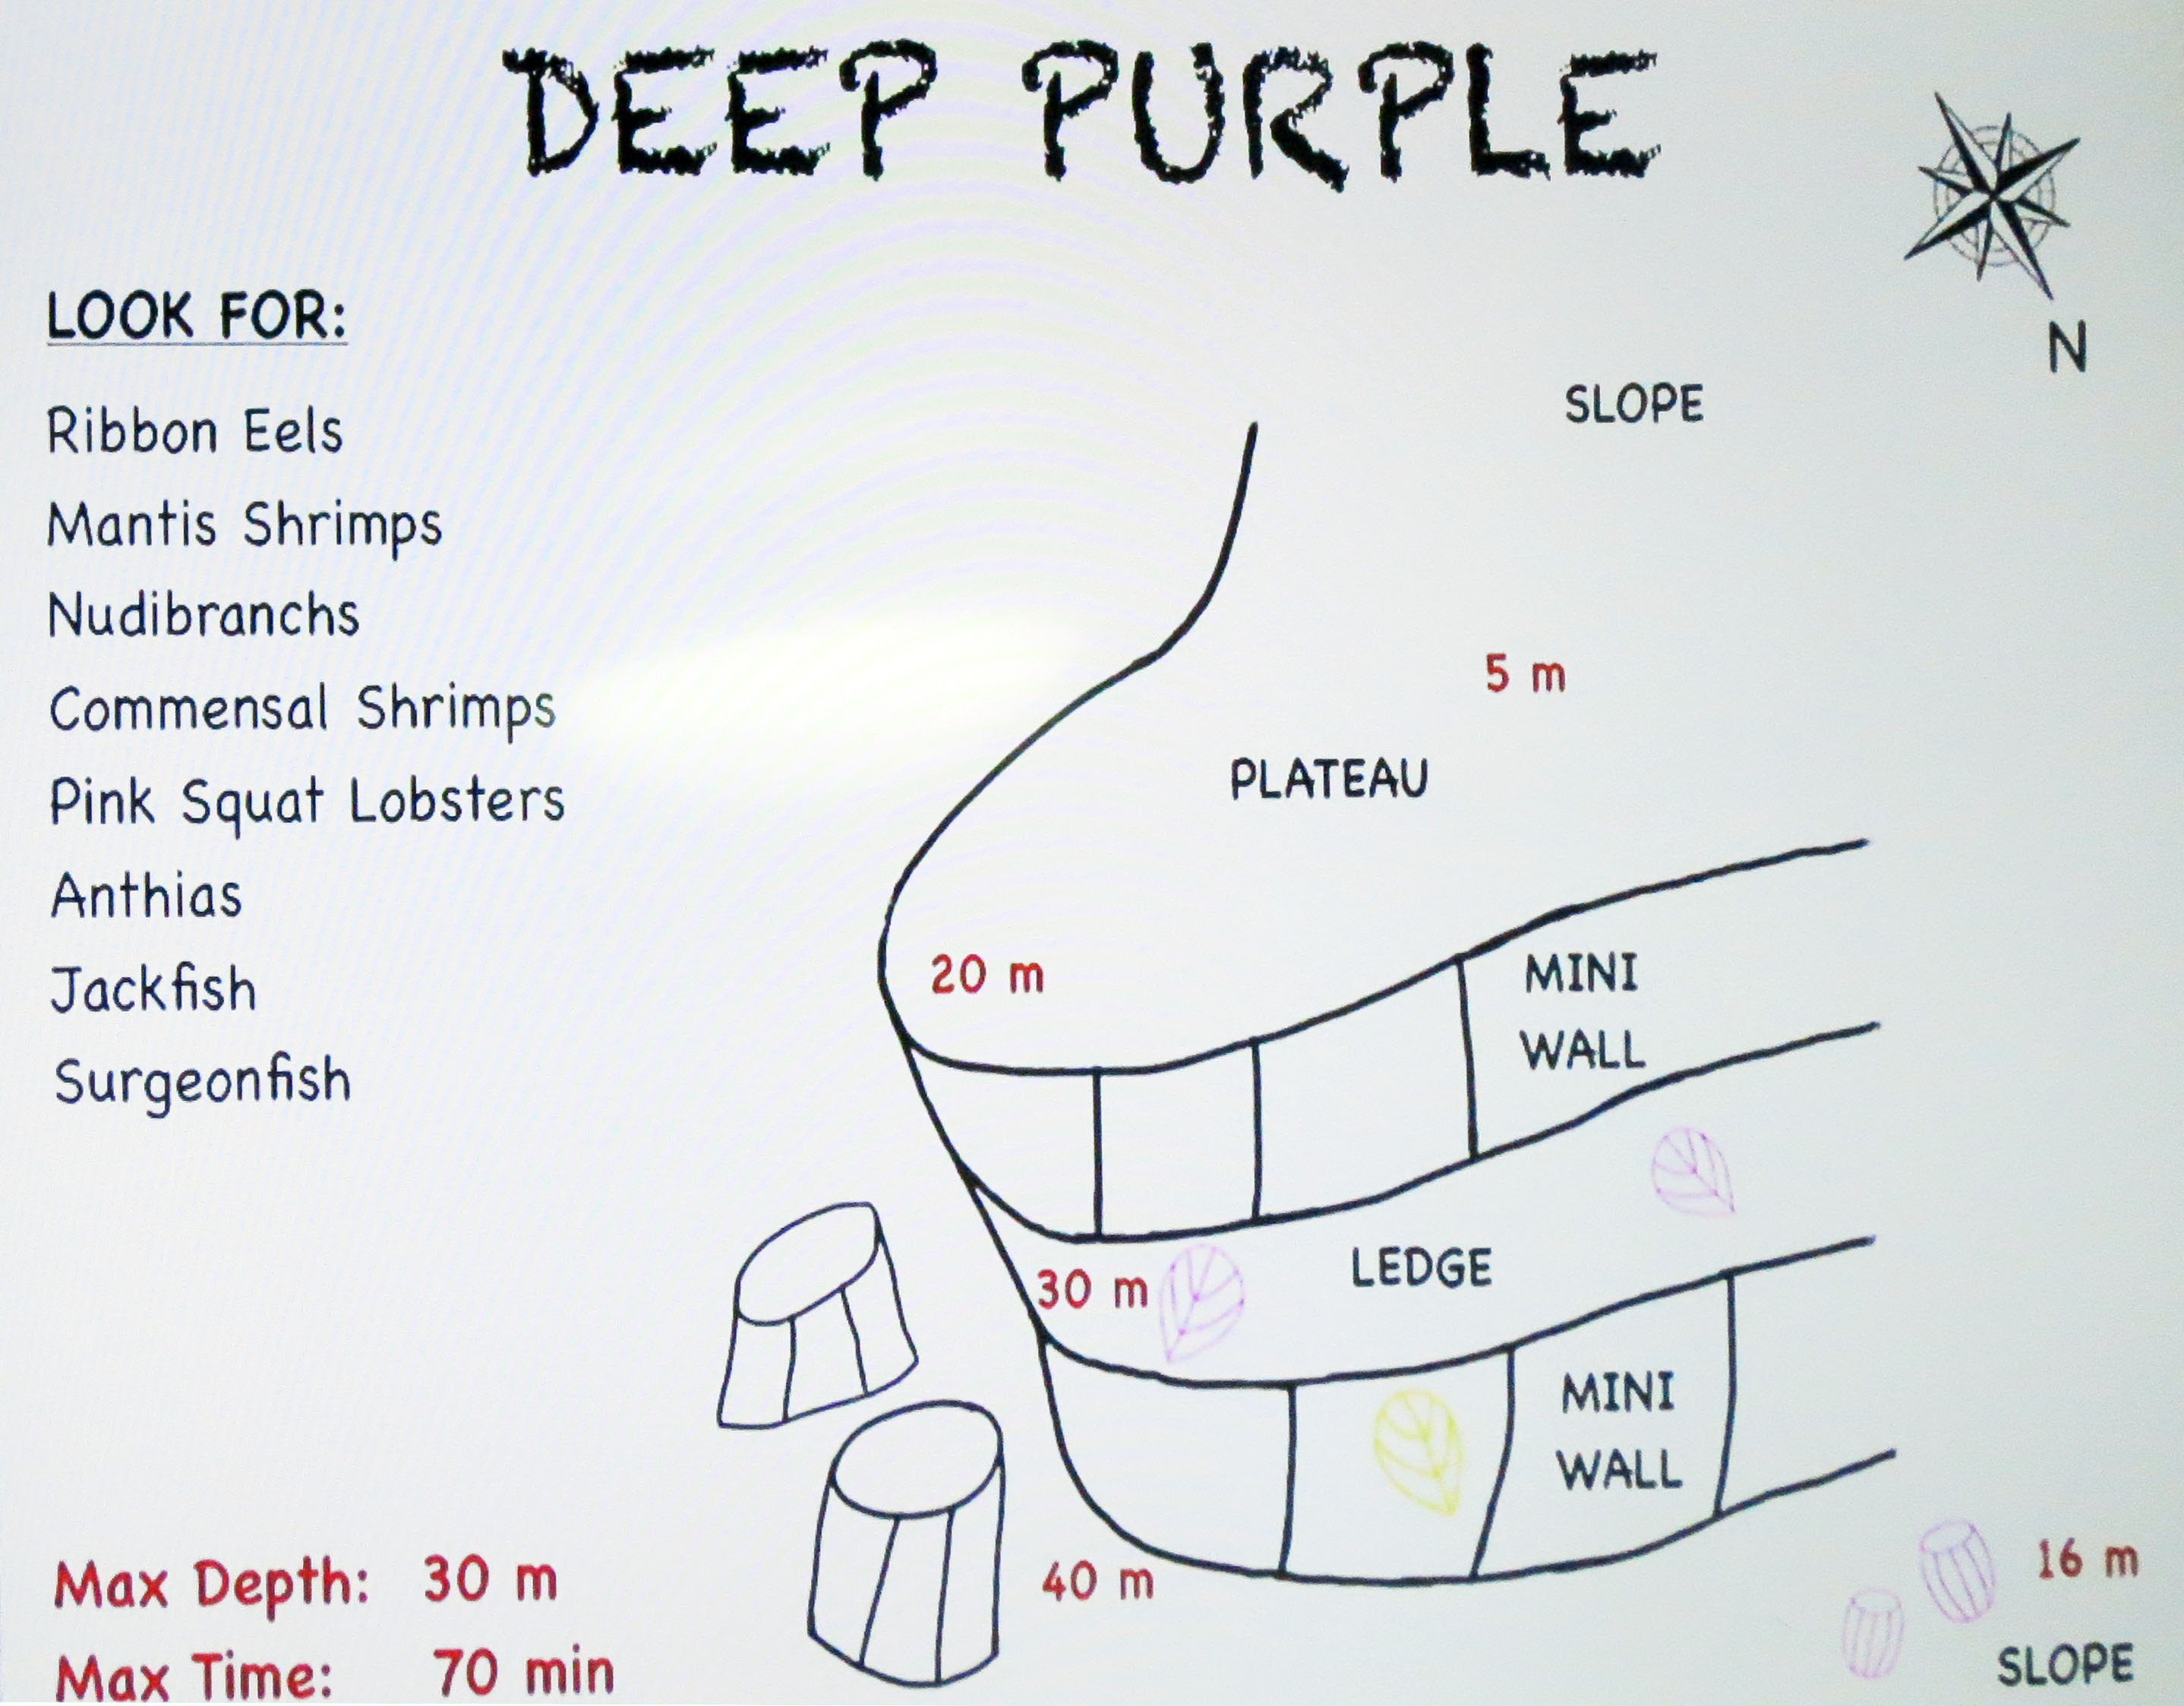 DEEP PURPLE
N
LOOK FOR:
Ribbon Eels
Mantis Shrimps
Nudibranchs
Commensal Shrimps
Pink Squat Lobsters
Anthias
Jackfish
Surgeonfish
Max Depth: 30 m
Max Time: 70 min
SLOPE
5 m
PLATEAU
20 m
MINI
WALL
30 m
LEDGE
MINI
WALL
40 m
16 m
SLOPE